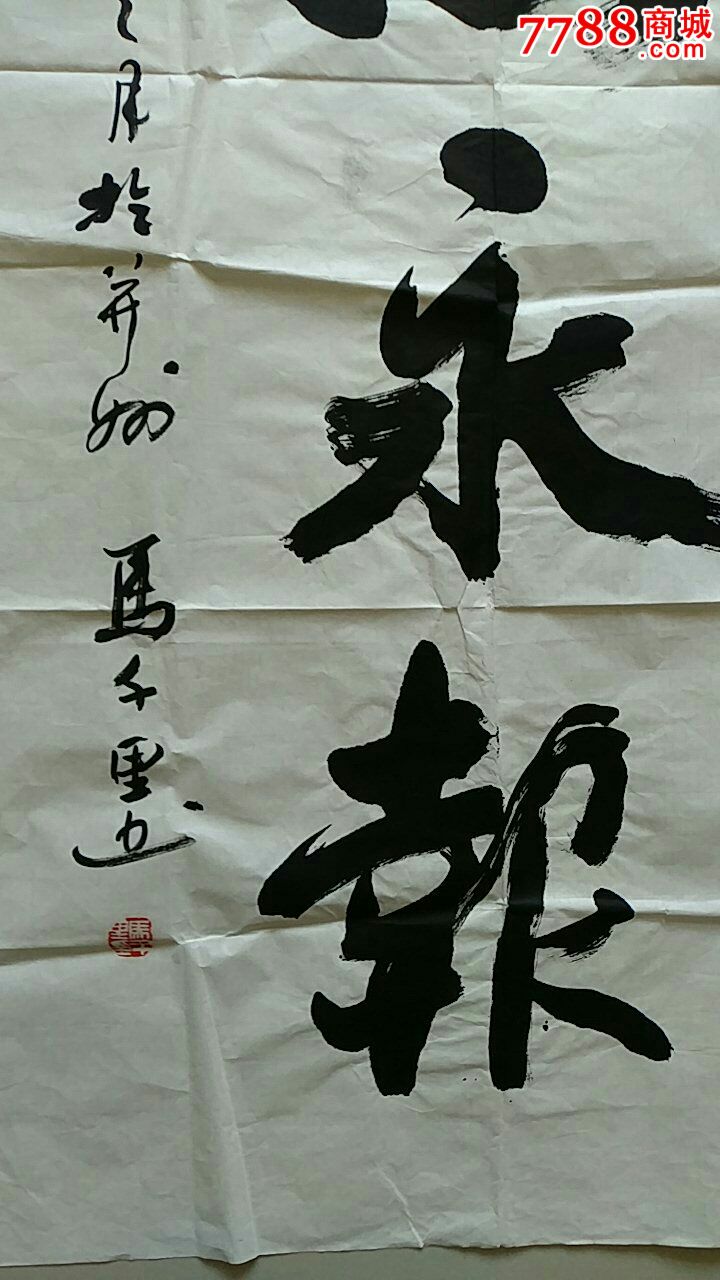 7788商城
.com
永報
月於并州 馬千里書